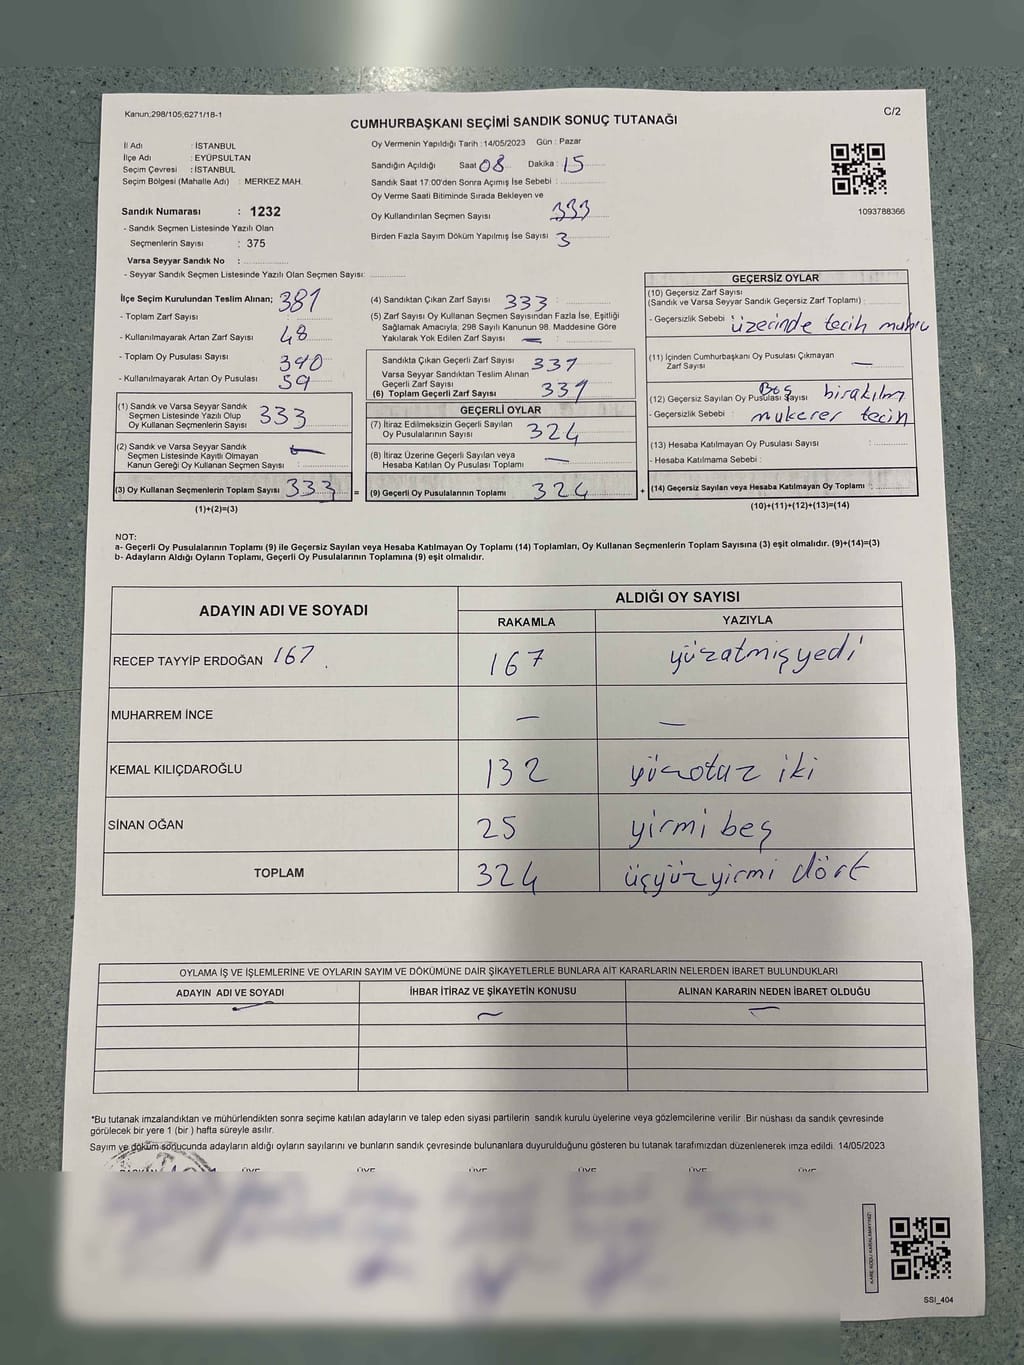 Kanun;298/105;6271/18-1
C/2
CUMHURBAŞKANI SEÇİMİ SANDIK SONUÇ TUTANAĞI
İl Adı : İSTANBUL
İlçe Adı : EYÜPSULTAN
Seçim Çevresi : İSTANBUL
Seçim Bölgesi (Mahalle Adı) : MERKEZ MAH.
Sandık Numarası : 1232
- Sandık Seçmen Listesinde Yazılı Olan
Seçmenlerin Sayısı : 375
Varsa Seyyar Sandık No :
- Seyyar Sandık Seçmen Listesinde Yazılı Olan Seçmen Sayısı:
Oy Vermenin Yapıldığı Tarih : 14/05/2023 Gün : Pazar
Sandığın Açıldığı Saat 08 Dakika : 15
Sandık Saat 17:00'den Sonra Açımış İse Sebebi :
Oy Verme Saati Bitiminde Sırada Bekleyen ve
Oy Kullandırılan Seçmen Sayısı 333
Birden Fazla Sayım Döküm Yapılmış İse Sayısı 3
1093788366
İlçe Seçim Kurulundan Teslim Alınan; 381
- Toplam Zarf Sayısı
- Kullanılmayarak Artan Zarf Sayısı 48
- Toplam Oy Pusulası Sayısı 390
- Kullanılmayarak Artan Oy Pusulası 59
(1) Sandık ve Varsa Seyyar Sandık
Seçmen Listesinde Yazılı Olup
Oy Kullanan Seçmenlerin Sayısı 333
(2) Sandık ve Varsa Seyyar Sandık
Seçmen Listesinde Kayıtlı Olmayan
Kanun Gereği Oy Kullanan Seçmen Sayısı
(3) Oy Kullanan Seçmenlerin Toplam Sayısı 333 =
(1)+(2)=(3)
(4) Sandıktan Çıkan Zarf Sayısı 333
(5) Zarf Sayısı Oy Kullanan Seçmen Sayısından Fazla İse, Eşitliği
Sağlamak Amacıyla; 298 Sayılı Kanunun 98. Maddesine Göre
Yakılarak Yok Edilen Zarf Sayısı —
Sandıkta Çıkan Geçerli Zarf Sayısı 331
Varsa Seyyar Sandıktan Teslim Alınan
Geçerli Zarf Sayısı
(6) Toplam Geçerli Zarf Sayısı 331
GEÇERLİ OYLAR
(7) İtiraz Edilmeksizin Geçerli Sayılan
Oy Pusulasının Sayısı 324
(8) İtiraz Üzerine Geçerli Sayılan veya
Hesaba Katılan Oy Pusulası Toplamı —
(9) Geçerli Oy Pusulalarının Toplamı 324 +
GEÇERSİZ OYLAR
(10) Geçersiz Zarf Sayısı
(Sandık ve Varsa Seyyar Sandık Geçersiz Zarf Toplamı) :
- Geçersizlik Sebebi üzerinde tecih
(11) İçinden Cumhurbaşkanı Oy Pusulası Çıkmayan
Zarf Sayısı —
(12) Geçersiz Sayılan Oy Pusulası Sayısı Boş
- Geçersizlik Sebebi : mukerer tecih
(13) Hesaba Katılmayan Oy Pusulası Sayısı :
- Hesaba Katılmama Sebebi :
(14) Geçersiz Sayılan veya Hesaba Katılmayan Oy Toplamı :
(10)+(11)+(12)+(13)=(14)
NOT:
a- Geçerli Oy Pusulalarının Toplamı (9) ile Geçersiz Sayılan veya Hesaba Katılmayan Oy Toplamı (14) Toplamları, Oy Kullanan Seçmenlerin Toplam Sayısına (3) eşit olmalıdır. (9)+(14)=(3)
b- Adayların Aldığı Oyların Toplamı, Geçerli Oy Pusulalarının Toplamına (9) eşit olmalıdır.
ADAYIN ADI VE SOYADI
ALDIĞI OY SAYISI
RAKAMLA YAZIYLA
RECEP TAYYİP ERDOĞAN 167 167 yüzatmışyedi
MUHARREM İNCE — —
KEMAL KILIÇDAROĞLU 132 yüzotuz iki
SİNAN OĞAN 25 yirmi beş
TOPLAM 324 üçyüzyirmi dört
OYLAMA İŞ VE İŞLEMLERİNE VE OYLARIN SAYIM VE DÖKÜMÜNE DAİR ŞİKAYETLERLE BUNLARA AİT KARARLARIN NELERDEN İBARET BULUNDUKLARI
ADAYIN ADI VE SOYADI İHBAR İTİRAZ VE ŞİKAYETİN KONUSU ALINAN KARARIN NEDEN İBARET OLDUĞU
*Bu tutanak imzalandıktan ve mühürlendikten sonra seçime katılan adayların ve talep eden siyasi partilerin sandık kurulu üyelerine veya gözlemcilerine verilir. Bir nüshası da sandık çevresinde
görülecek bir yere 1 (bir ) hafta süreyle asılır.
Sayım ve döküm sonucunda adayların aldığı oyların sayılarını ve bunların sandık çevresinde bulunanlara duyurulduğunu gösteren bu tutanak tarafımızdan düzenlenerek imza edildi. 14/05/2023
SSI_404